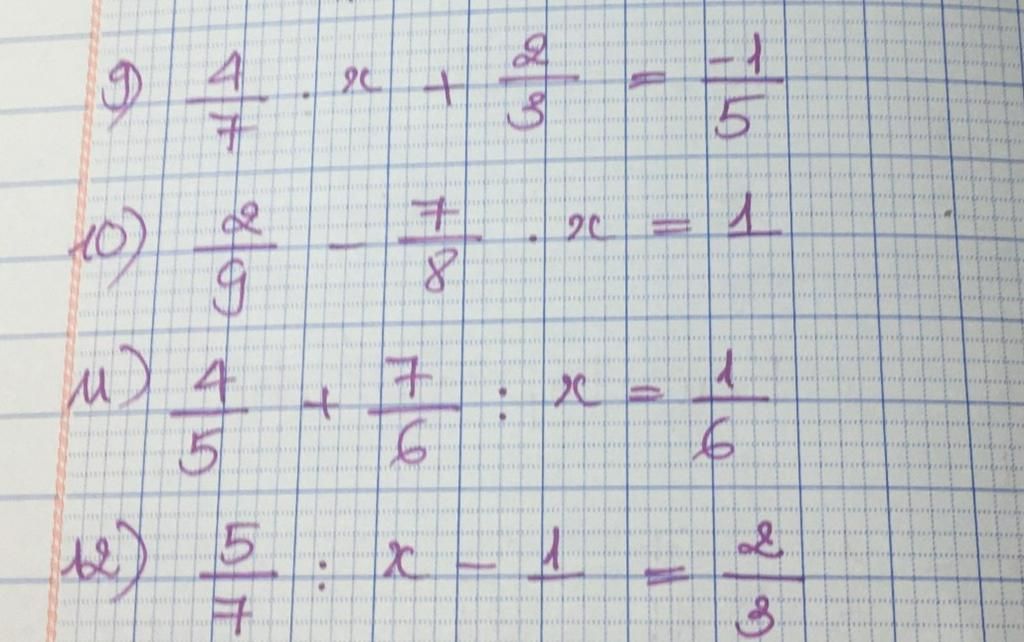 9) 4/7 . x + 2/3 = -1/5
10) 2/9 - 7/8 . x = 1
11) 4/5 + 7/6 : x = 1/6
12) 5/7 : x - 1 = 2/3